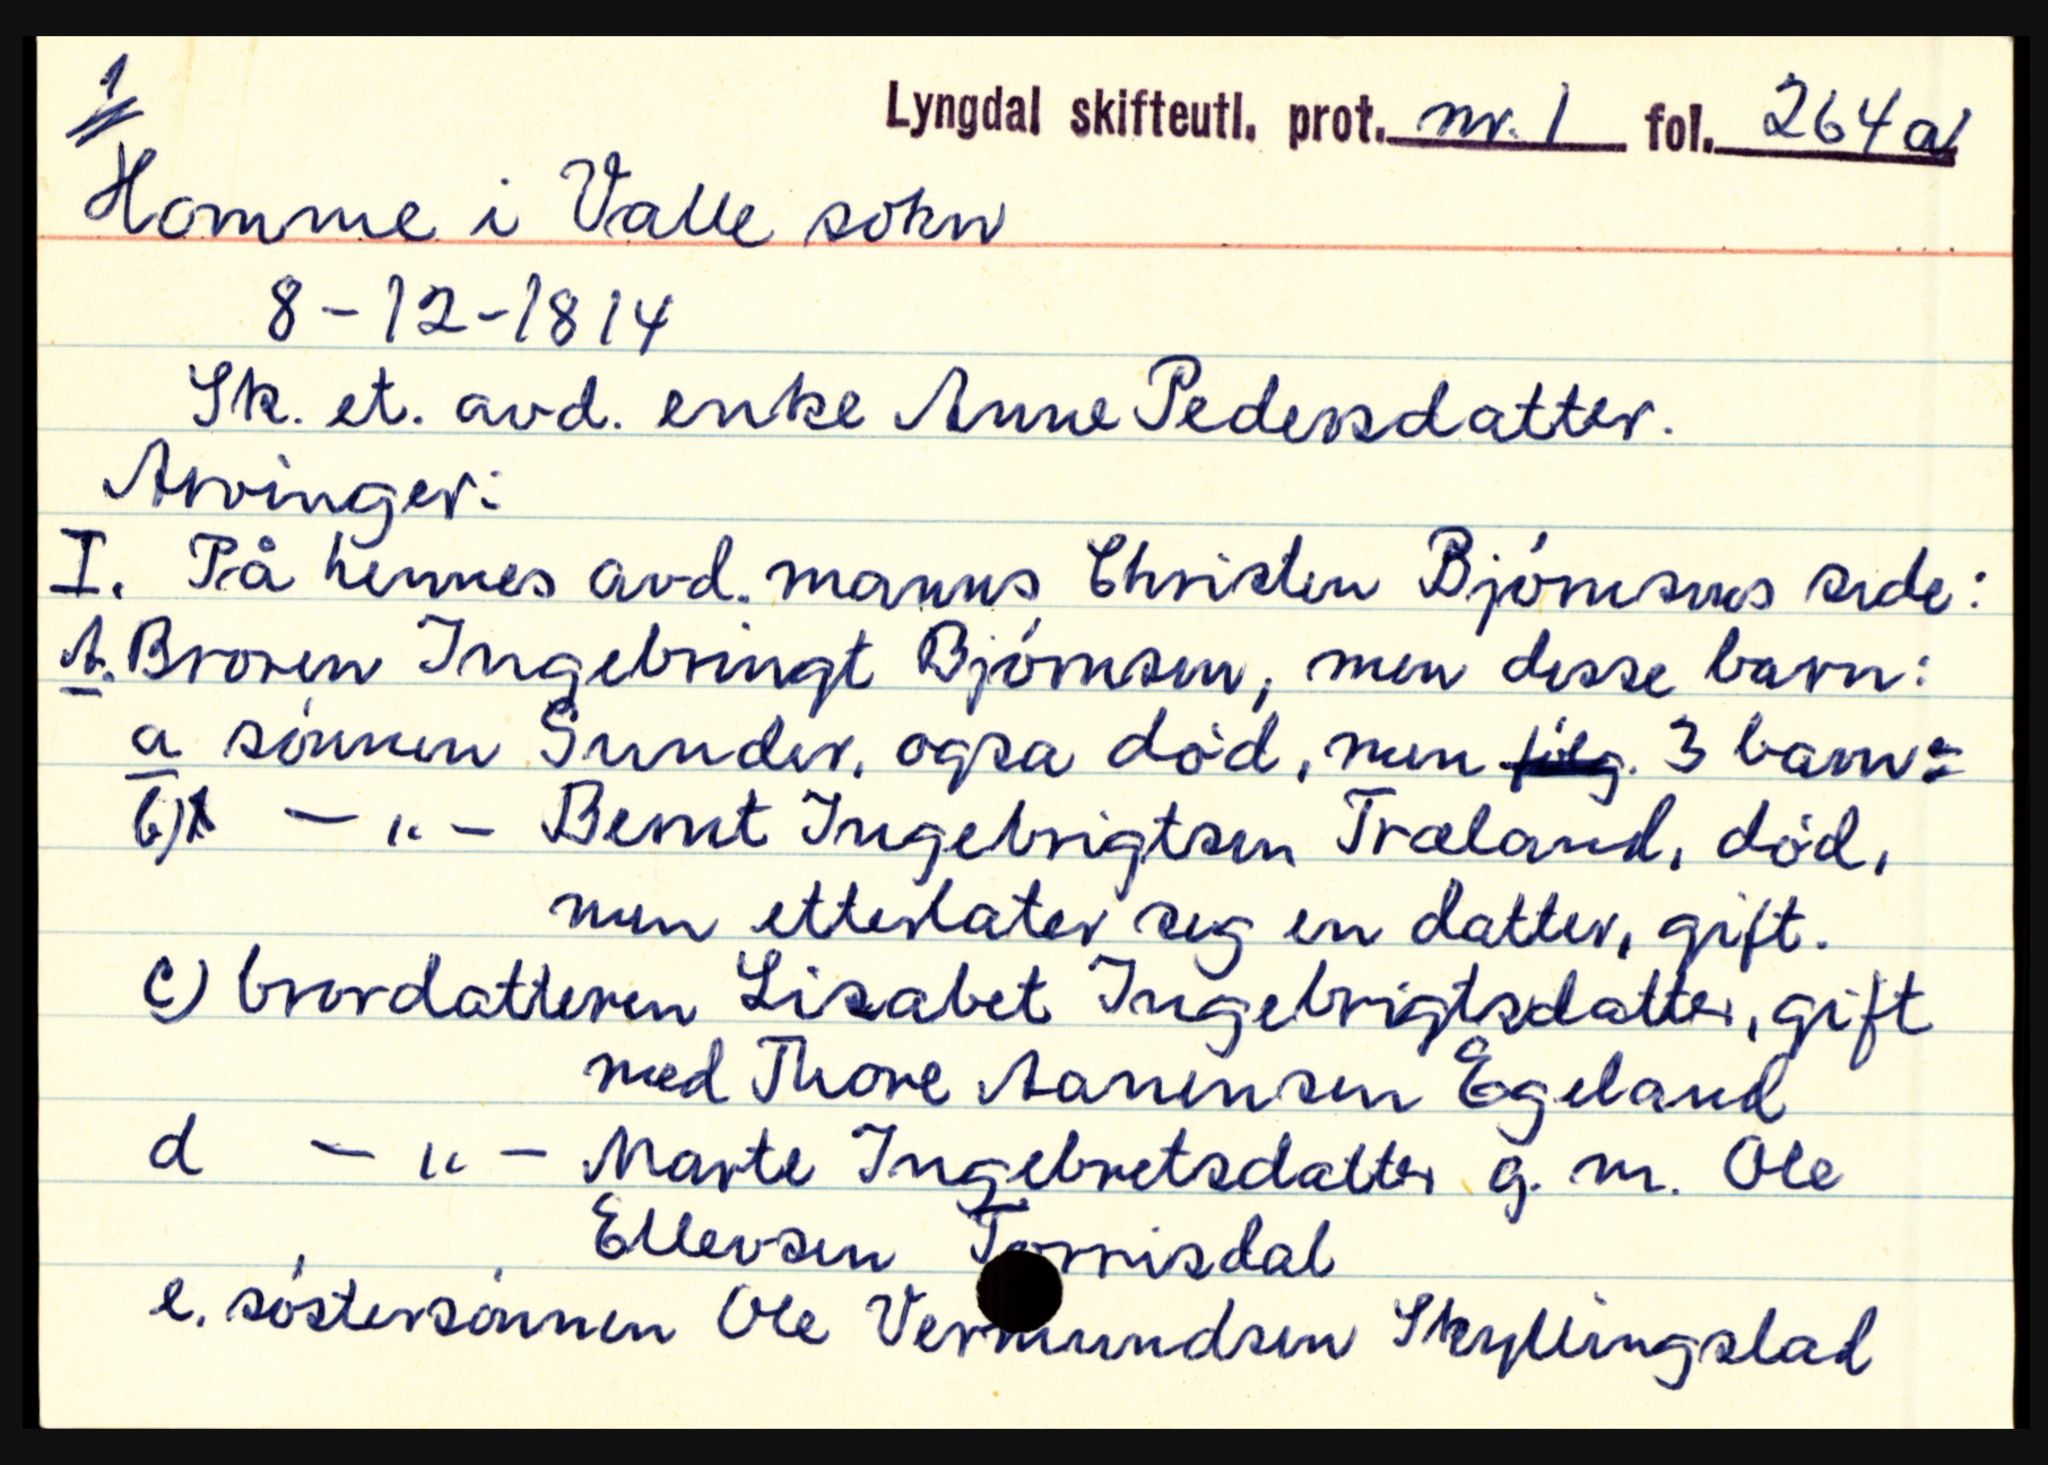 1
Lyngdal skifteutl. prot. nr. 1 fol. 264a
Homme i Valle sokn
8-12-1814
Sk. et. avd. enke Anne Pedersdatter.
Arvinger:
I. På hennes avd. manns Christen Bjørnsens side:
A. Broren Ingebringt Bjørnsen, men disse barn:
a sønnen Gunder, ogsa død, men følg. 3 barn:
b) — " — Bernt Ingebrigtsen Træland, død,
men etterlater seg en datter, gift.
c) brordatteren Lisabet Ingebrigtsdatter, gift
med Thore Aanensen Egeland
d — " — Marte Ingebretsdatter g. m. Ole
Ellevsen Torrisdal
e. søstersønnen Ole Vermundsen Skyllingslad